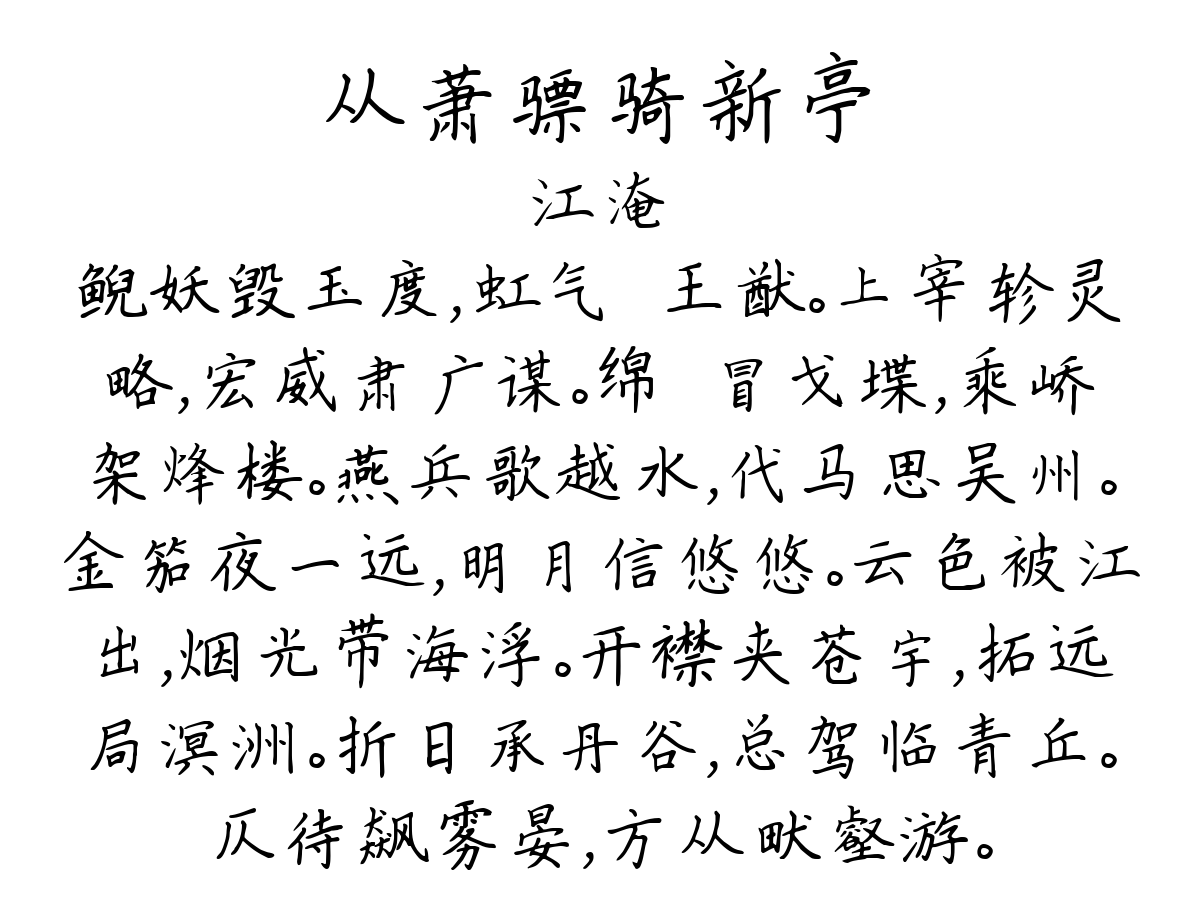 从萧骠骑新亭
江淹
鲵妖毁玉度,虹气 王猷。上宰轸灵
略,宏威肃广谋。绵 冒戈堞,乘峤
架烽楼。燕兵歌越水,代马思吴州。
金笳夜一远,明月信悠悠。云色被江
出,烟光带海浮。开襟夹苍宇,拓远
局溟洲。折日承丹谷,总驾临青丘。
仄待飙雾晏,方从畎壑游。